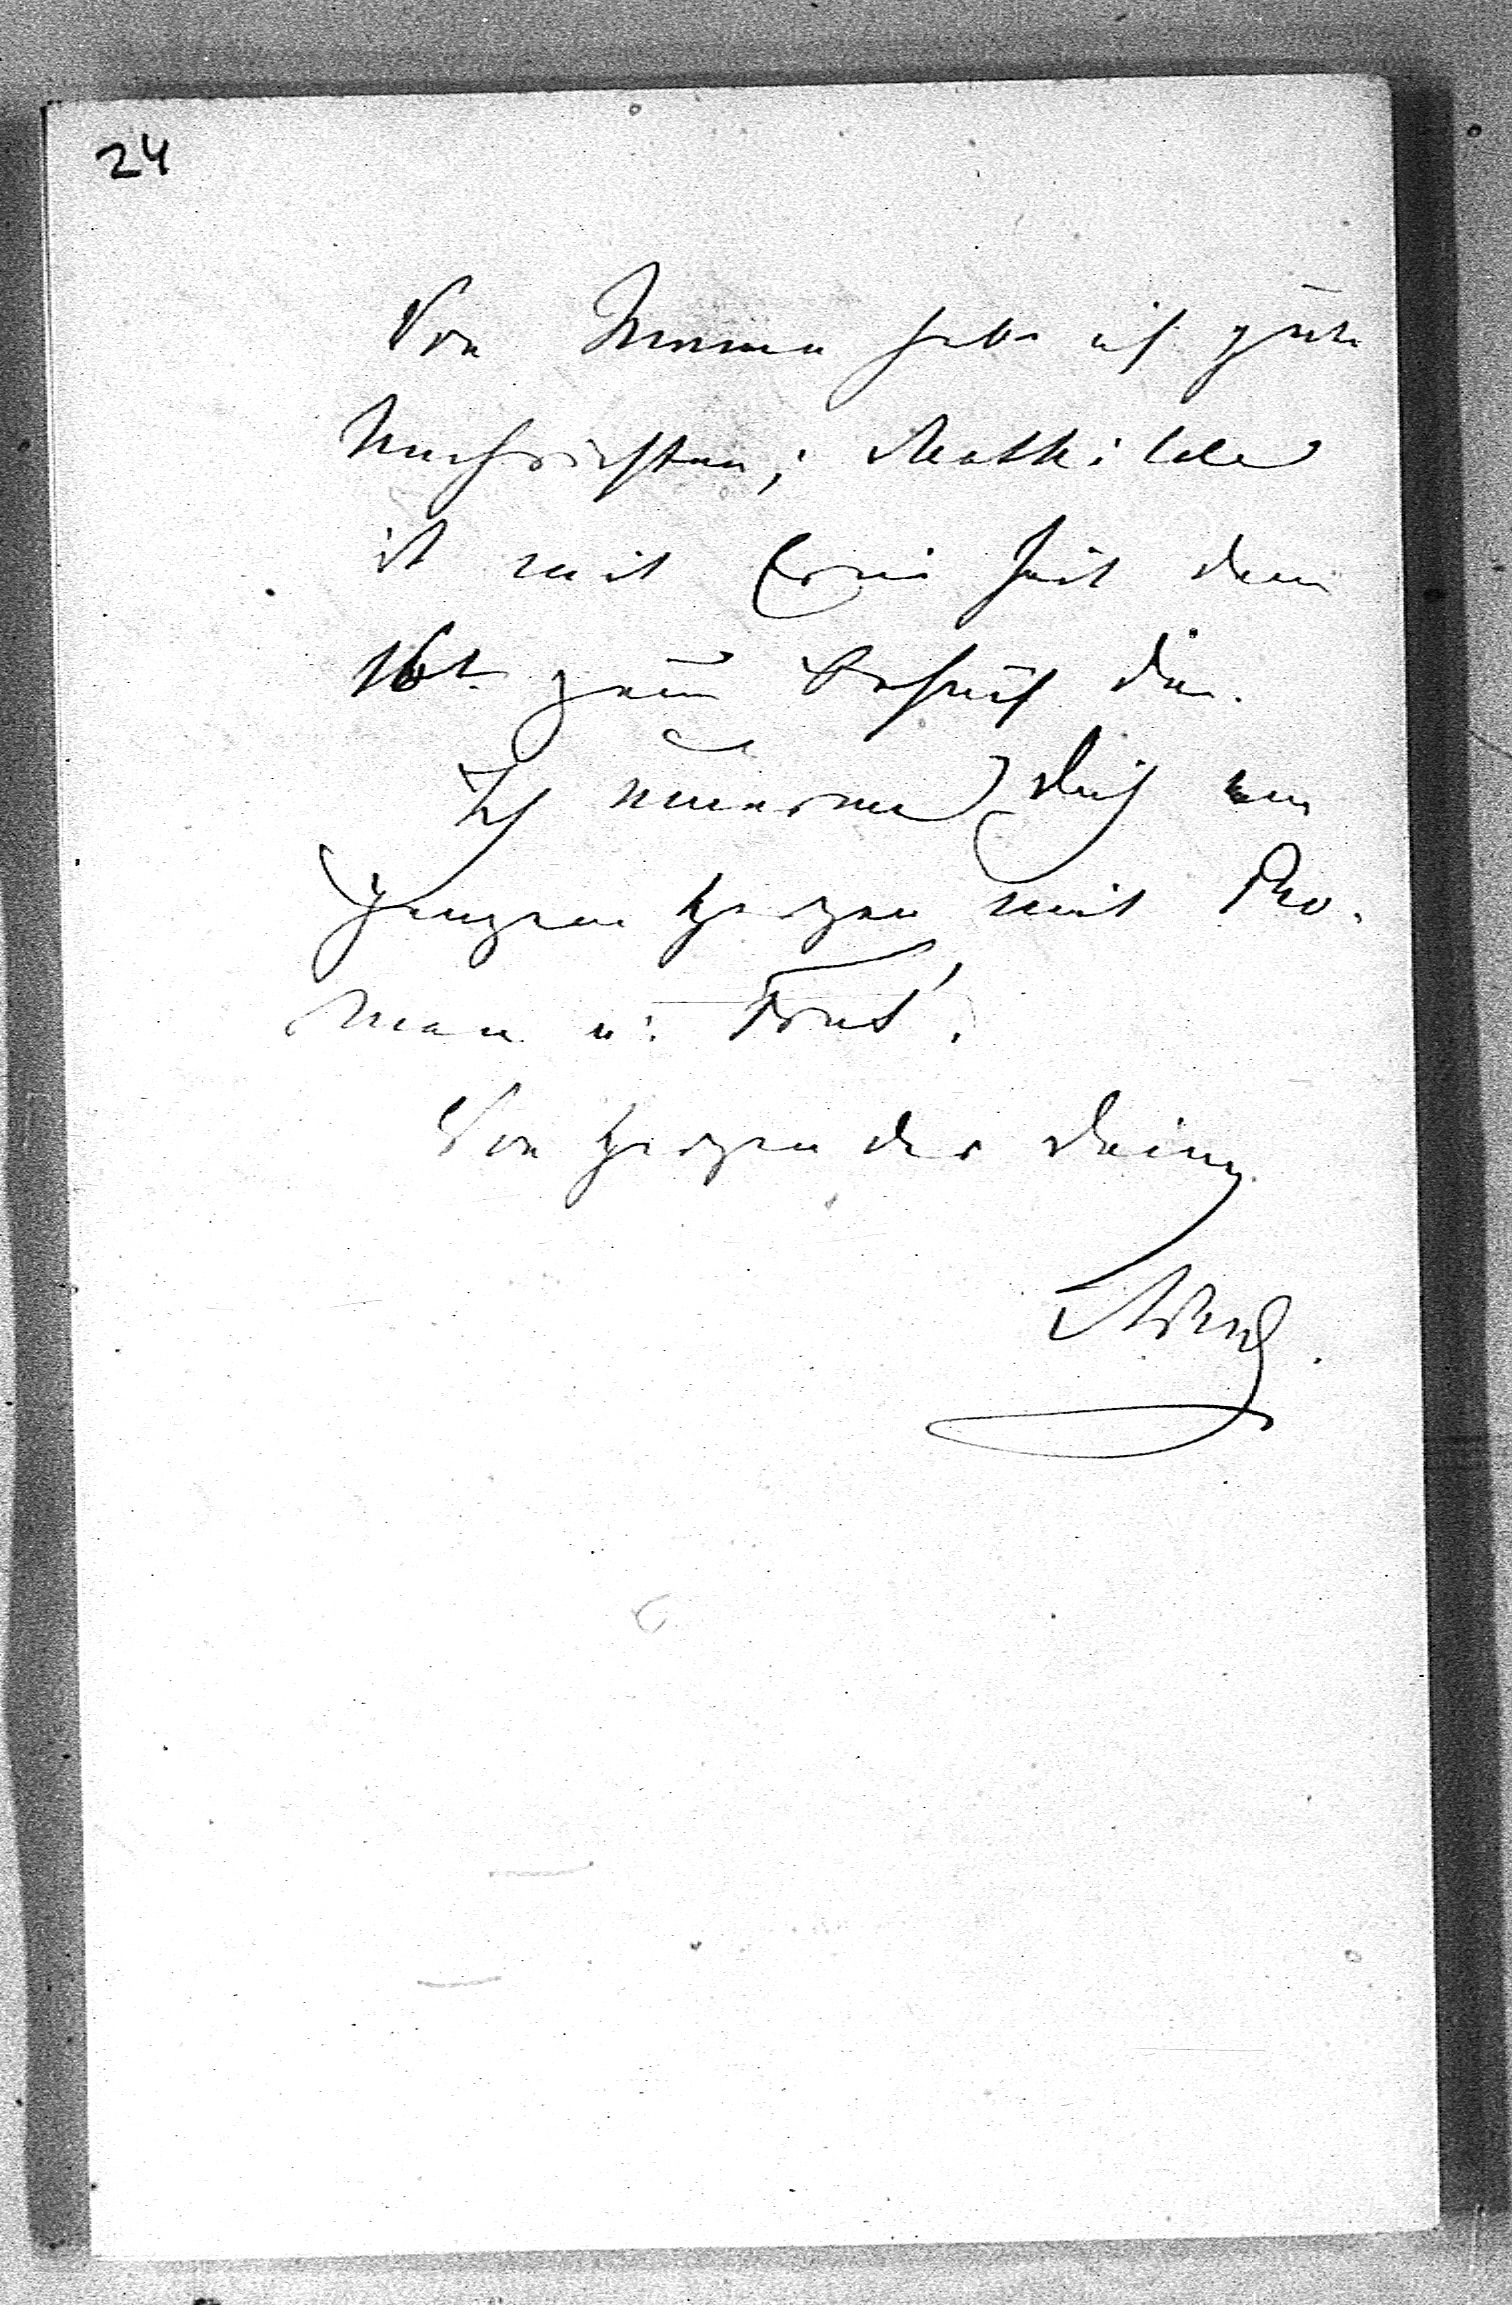 24
Von Mama habe ich gute
Nachrichten; Mathilde
ist mit Erni seit dem
16t. zum Besuch da.
Ich umarme Dich von
ganzem Herzen mit Ro-
man u:
Von Herzen der Deine